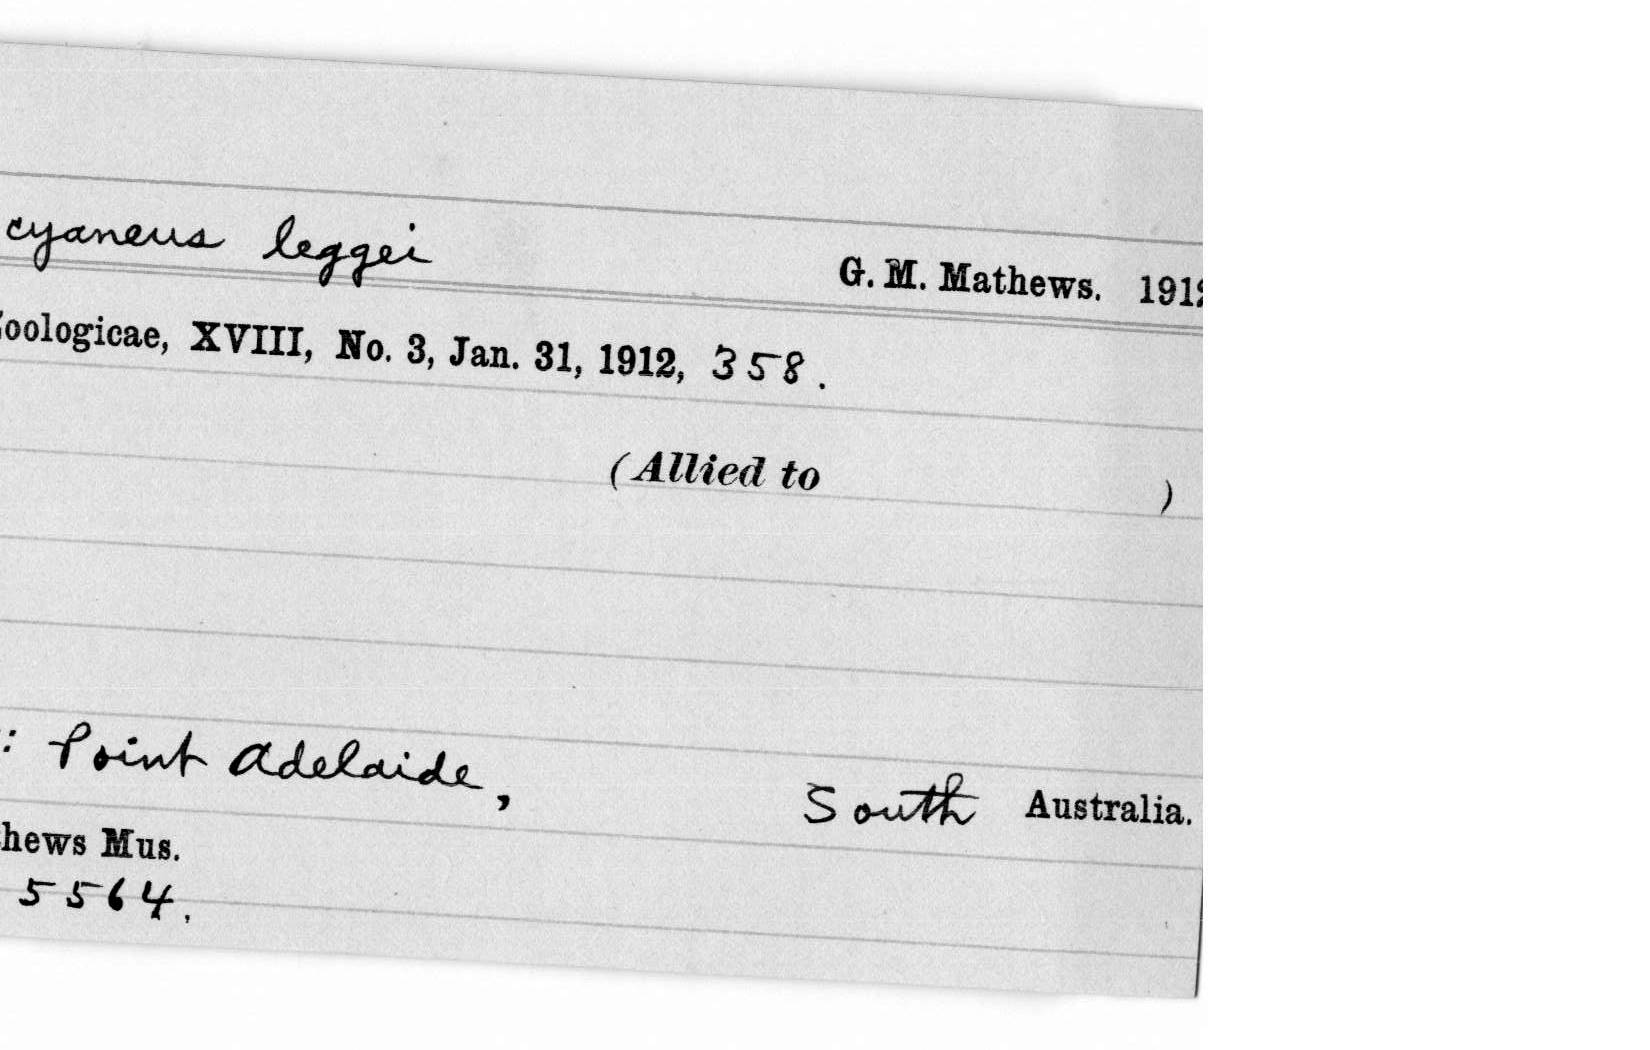 cyaneus leggei G. M. Mathews. 1912
oologicae, XVIII, No. 3, Jan. 31, 1912, 358.
(Allied to )
: Point Adelaide, South Australia.
hews Mus.
5564.